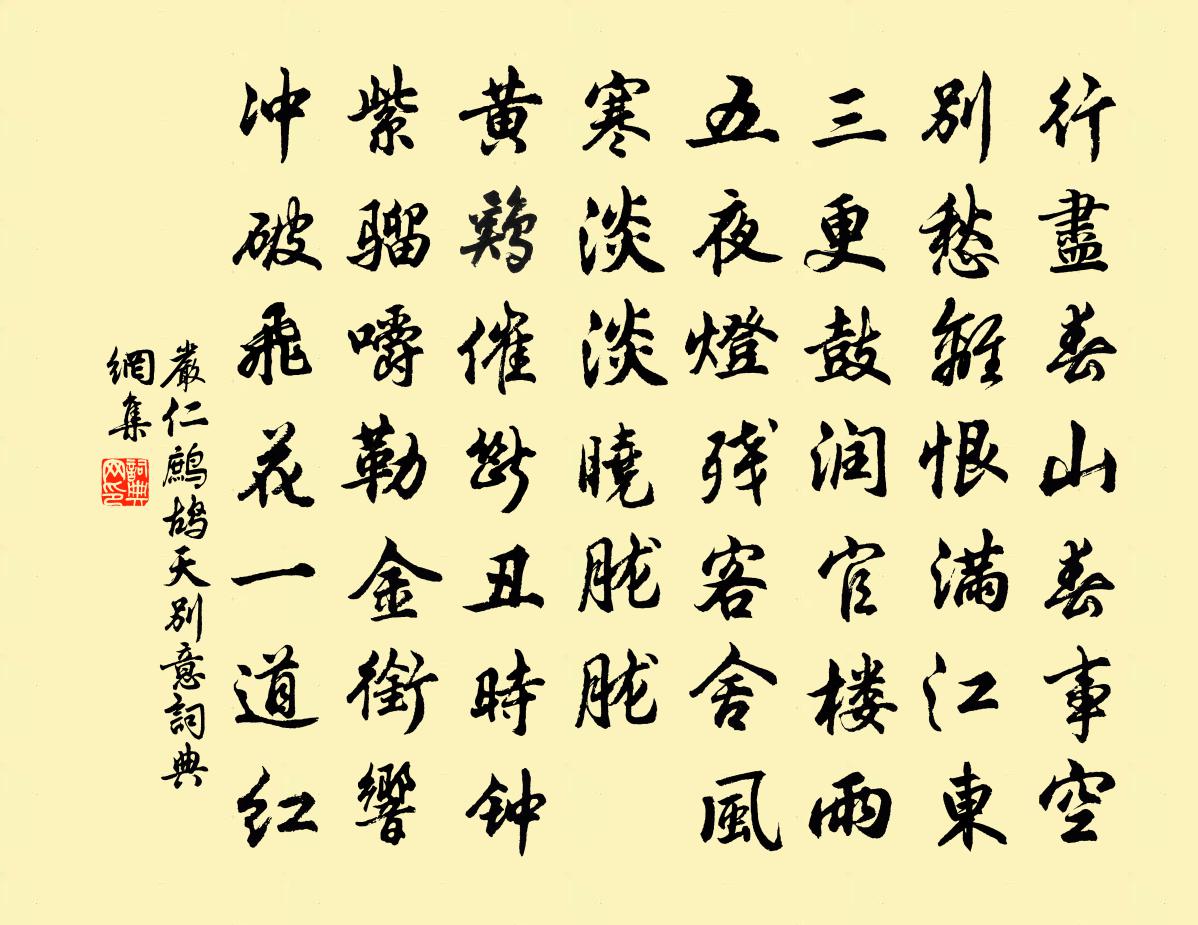 行盡春山春事空
別愁離恨滿江東
三更鼓润官楼雨
五夜燈残客舍風
寒淡淡曉朧朧
黄鷄催斷丑時钟
紫騮嚼勒金銜響
冲破飛花一道红
嚴仁鷓鴣天別意詞典
網集
詞典
网印